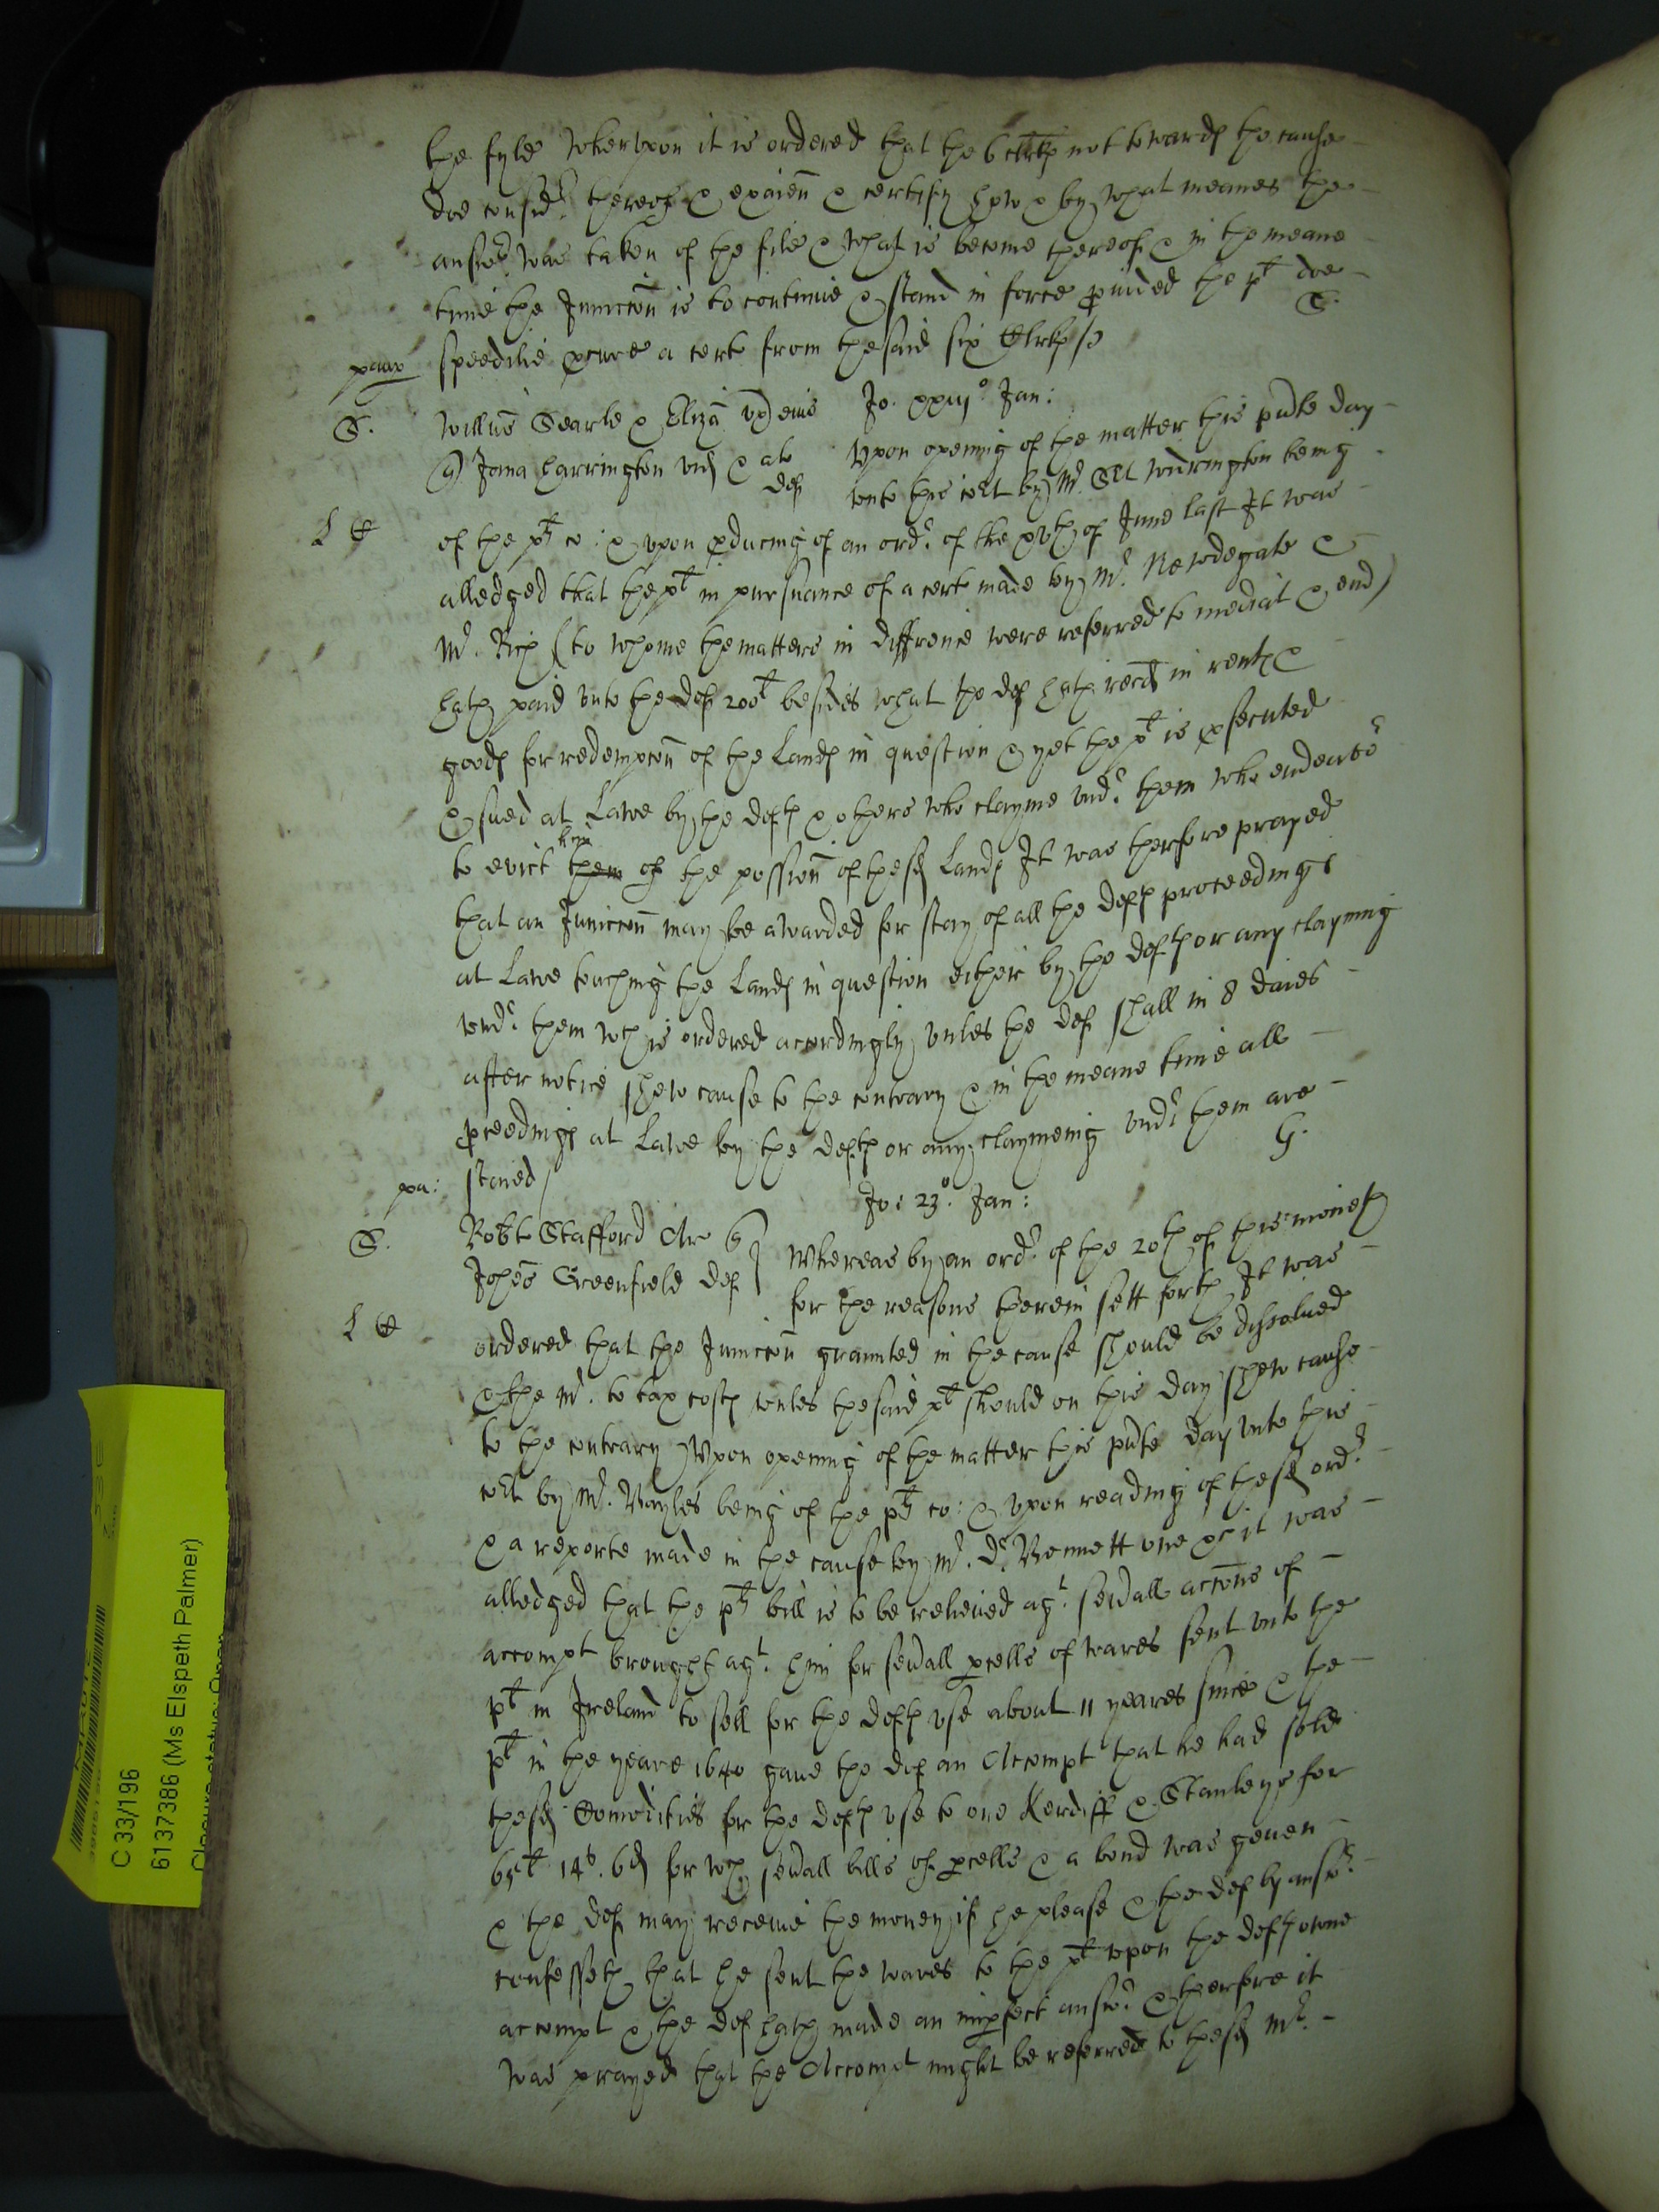 the fyle Wherupon it is ordered that the 6 Clrks not towards the cause
doe consid^r thereof & exaien & certify how & by what meanes the
answ^r was taken of the file & what is become thereof & in the meane
time the Iniuccon is to continue & stand in force pvided the p^t doe
S.
speedilie pcure a cert from the said six Clrks
S. Willus Searle & Eliza ux eius Jo. xxiij° Jan:
Joina Harrington vid & al Upon opening of the matter this pnte day
def unto this co^rt by M^r Widrington being
L
of the p^ts co: & upon pducing of an ord^r of the xvth of June last It was
alledged that the p^t in pursuance of a cert made by M^r Newdegate &
M^r Rich (to whome the matters in diffrence were referred to mediat & end)
hath paid unto the def 200^l besides what the def hath recd in rents &
goods for redempcon of the Lands in question & yet the p^t is psecuted
& sued at Lawe by the defts & others who clayme und^r them who endeavo^r
to evict them him of the possion of the sd Lands It was therfore prayed
that an Iniuccon may be awarded for stay of all the defts proceedings
at Lawe touching the Lands in question either by the defts or any clayming
und^r them wch is ordered accordingly unles the def shall in 8 daies
after notice shew cause to the contrary & in the meane time all
pceedings at Lawe by the defts or any claymeing und^r them are
G.
pa: staied
Jo: 23° Jan:
S. Robt Stafford Ar Whereas by an ord^r of the 20th of this moneth
Johes Greenfield def for the reasons therein sett forth It was
L
ordered that the Iniuccon graunted in the cause should be dissolued
& the M^r to tax costs unles the said p^t should on this day shew cause
to the contrary Upon opening of the matter this pnte day unto this
co^rt by M^r Vayles being of the p^ts co: & upon reading of the sd ord^r
& a reporte made in the cause by M^r D^r Bennett one &c it was
alledged that the p^ts bill is to be relieued ag^t seuall accons of
accompt brought ag^t him for seuall pcells of wares sent unto the
p^t in Ireland to sell for the defts use about 11 yeares since & the
p^t in the yeare 1640 gaue the def an Accompt that he had sold
the sd Comodities for the defts use to one Kerdiff & Stanleys for
65^l 14^s. 6d for wch seuall bills of pcells & a bond was geuen
& the def may receiue the money if he please & the def by answ^r
confesseth that he sent the wares to the p^t upon the defts owne
accompt & the def hath made an impfect answ^r & therfore it
was prayed that the Accompt might be referred to the sd M^r
C 33/196
6137386 (Ms Elspeth Palmer)